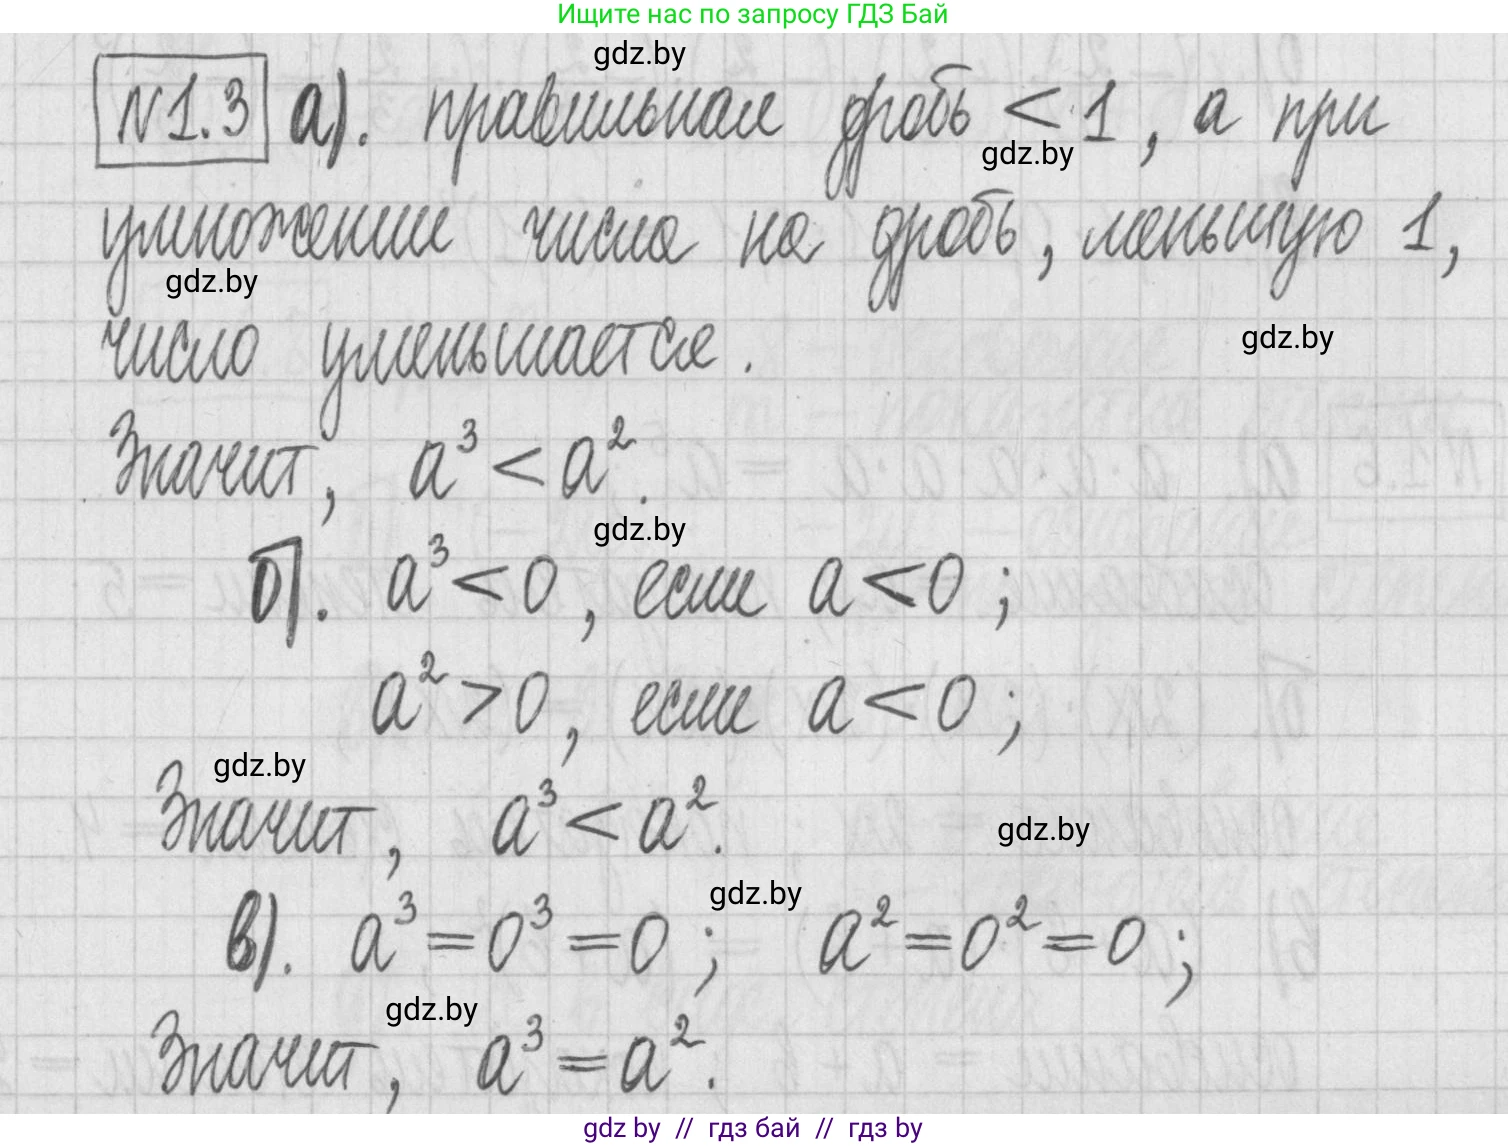 Ищите нас по запросу ГДЗ Бай
gdz.by
№1.3 а). правильная дробь < 1, а при
gdz.by
умножении числа на дробь, меньшую 1,
gdz.by
число уменьшается.
gdz.by
Значит, a³ < a².
gdz.by
б). a³ < 0, если a < 0;
a² > 0, если a < 0;
gdz.by
Значит, a³ < a².
gdz.by
gdz.by
в). a³ = 0³ = 0; a² = 0² = 0;
gdz.by
Значит, a³ = a².
gdz by // гдз бай // гдз by